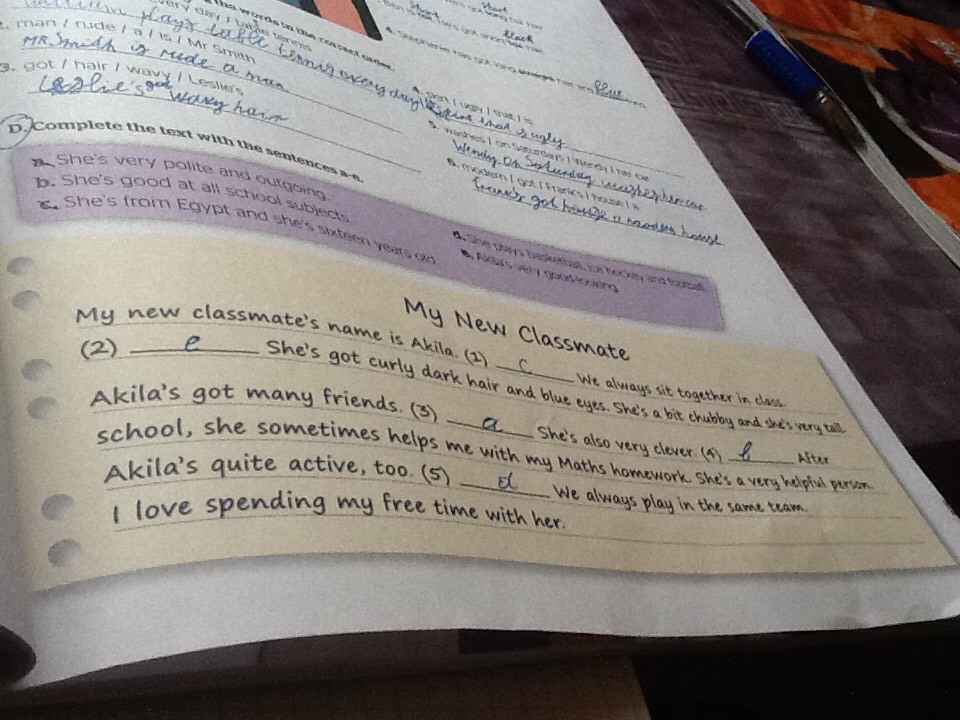 every day /
the words in the correct order.
plays table tennis every day
2. man / rude / a / is / Mr Smith
MR Smith is rude a man
3. got / hair / wavy / Leslie's
Leslie's got wavy hair
black
blue
4. skirt / ugly / that / is
skirt that is ugly
5. washes / on Saturdays / Wendy / her car
Wendy On Saturday washes her car
6. modern / got / Frank's / house / a
D. Complete the text with the sentences a-e.
a. She's very polite and outgoing.
b. She's good at all school subjects.
c. She's from Egypt and she's sixteen years old.
d. She plays basketball, ice hockey and football.
e. Akila's very good-looking.
My New Classmate
My new classmate's name is Akila. (1) c We always sit together in class.
(2) e She's got curly dark hair and blue eyes. She's a bit chubby and she's very tall.
Akila's got many friends. (3) a She's also very clever. (4) b After
school, she sometimes helps me with my Maths homework. She's a very helpful person.
Akila's quite active, too. (5) d We always play in the same team.
I love spending my free time with her.